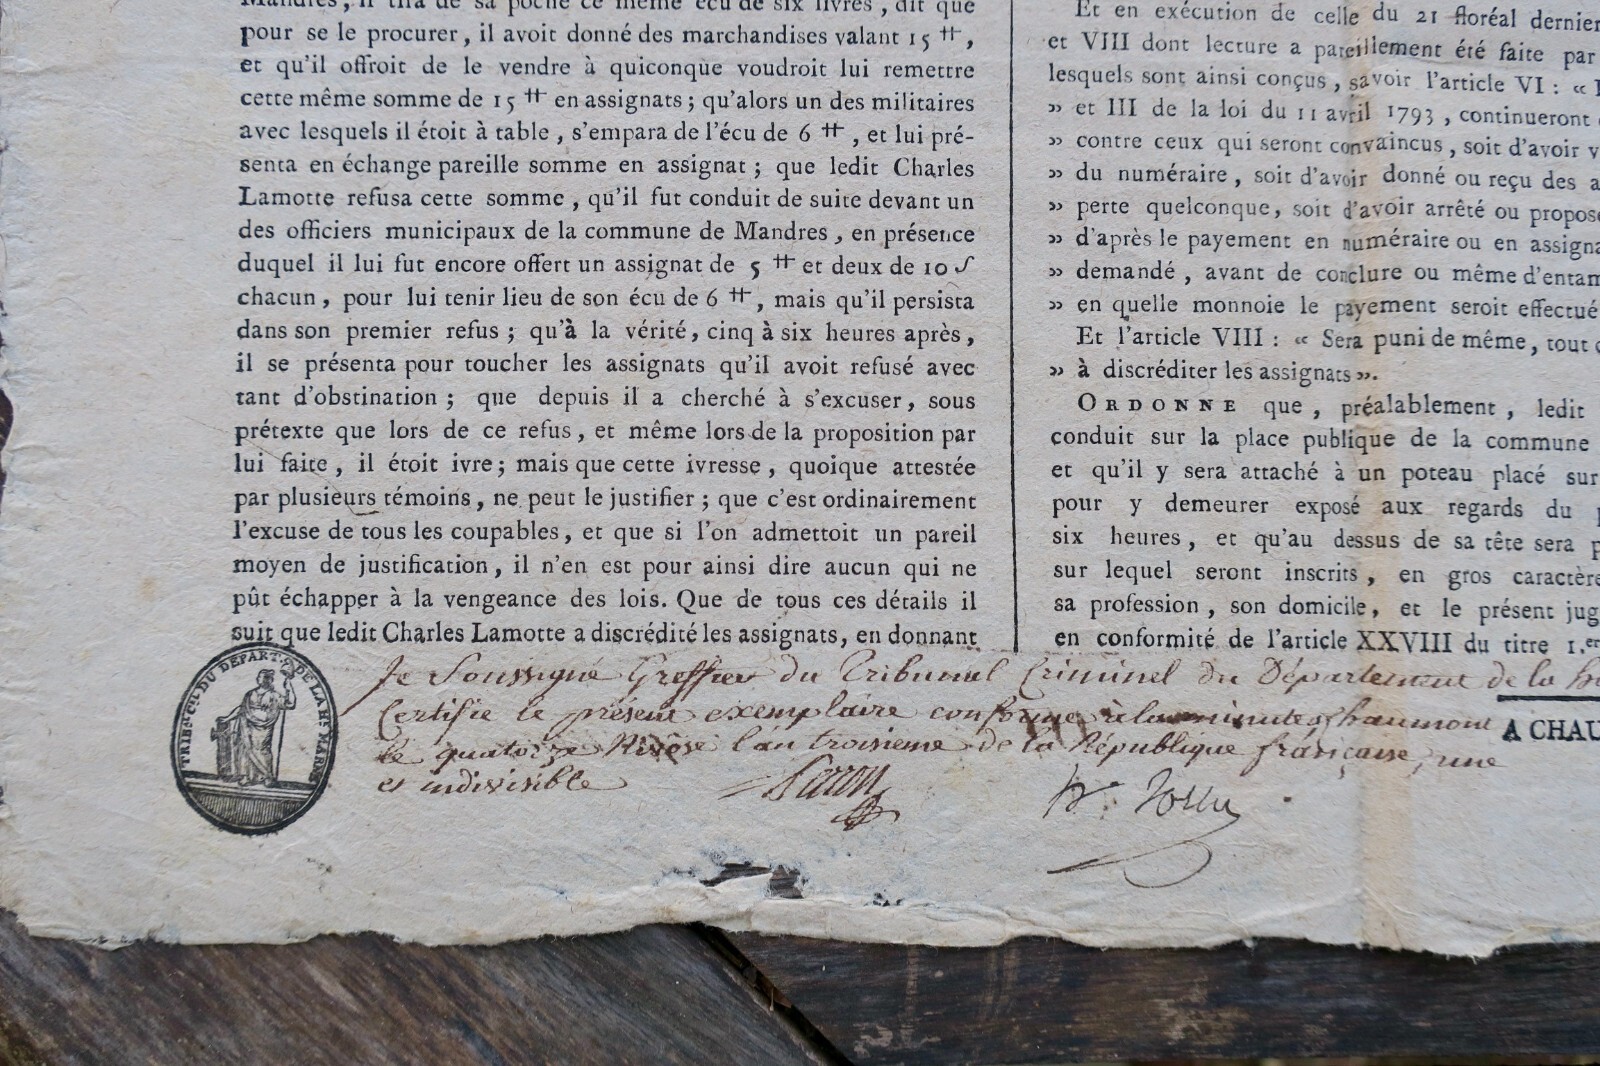 Mandres, il tira de sa poche ce même écu de six livres, dit que
pour se le procurer, il avoit donné des marchandises valant 15 ₶,
et qu'il offroit de le vendre à quiconque voudroit lui remettre
cette même somme de 15 ₶ en assignats; qu'alors un des militaires
avec lesquels il étoit à table, s'empara de l'écu de 6 ₶, et lui pré-
senta en échange pareille somme en assignat; que ledit Charles
Lamotte refusa cette somme, qu'il fut conduit de suite devant un
des officiers municipaux de la commune de Mandres, en présence
duquel il lui fut encore offert un assignat de 5 ₶ et deux de 10 ſ
chacun, pour lui tenir lieu de son écu de 6 ₶, mais qu'il persista
dans son premier refus; qu'à la vérité, cinq à six heures après,
il se présenta pour toucher les assignats qu'il avoit refusé avec
tant d'obstination; que depuis il a cherché à s'excuser, sous
prétexte que lors de ce refus, et même lors de la proposition par
lui faite, il étoit ivre; mais que cette ivresse, quoique attestée
par plusieurs témoins, ne peut le justifier; que c'est ordinairement
l'excuse de tous les coupables, et que si l'on admettoit un pareil
moyen de justification, il n'en est pour ainsi dire aucun qui ne
pût échapper à la vengeance des lois. Que de tous ces détails il
suit que ledit Charles Lamotte a discrédité les assignats, en donnant
Et en exécution de celle du 21 floréal dernier
et VIII dont lecture a pareillement été faite par
lesquels sont ainsi conçus, savoir l'article VI : «
» et III de la loi du 11 avril 1793, continueront
» contre ceux qui seront convaincus, soit d'avoir v
» du numéraire, soit d'avoir donné ou reçu des a
» perte quelconque, soit d'avoir arrêté ou proposé
» d'après le payement en numéraire ou en assigna
» demandé, avant de conclure ou même d'entam
» en quelle monnoie le payement seroit effectué
Et l'article VIII : « Sera puni de même, tout
» à discréditer les assignats ».
ORDONNE que, préalablement, ledit
conduit sur la place publique de la commune
et qu'il y sera attaché à un poteau placé sur
pour y demeurer exposé aux regards du p
six heures, et qu'au dessus de sa tête sera p
sur lequel seront inscrits, en gros caractère
sa profession, son domicile, et le présent jug
en conformité de l'article XXVIII du titre 1.er
TRIB.L CR.L DU DÉPART.T DE LA H.TE MARNE
Je Soussigné Greffier du Tribunal Criminel du Département de la h
Certifie le présent exemplaire conforme à la minute Chaumont
le quatorze Nivôse l'an troisieme de la République française, une
et indivisible
A CHAU